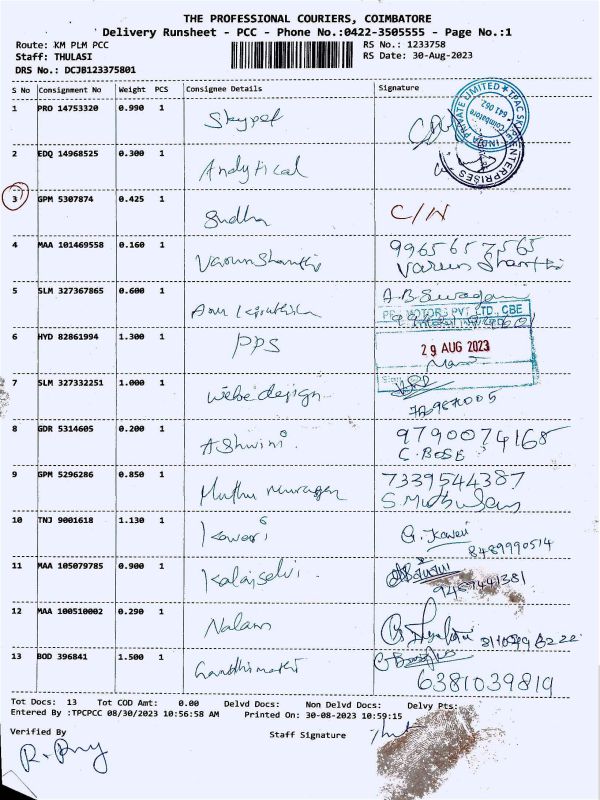 THE PROFESSIONAL COURIERS, COIMBATORE
Delivery Runsheet - PCC - Phone No.:0422-3505555 - Page No.:1
Route: KM PLM PCC RS No.: 1233758
Staff: THULASI RS Date: 30-Aug-2023
DRS No.: DCJB123375801
S No Consignment No Weight PCS Consignee Details Signature
1 PRO 14753320 0.990 1 Skypet
INDIA PRIVATE LIMITED
Coimbatore
641 062
ENTERPRISES
2 EDQ 14968525 0.300 1 Analytical
3 GPM 5307874 0.425 1 Sudha C/N
4 MAA 101469558 0.160 1 Varunshanthi 9965657565
Varun Shanthi
5 SLM 327367865 0.600 1 A.B.
MOTORS PVT LTD., CBE
6 HYD 82861994 1.300 1 PPS 29 AUG 2023
7 SLM 327332251 1.000 1 webedesign
8 GDR 5314605 0.200 1 Ashwini 9790074168
C. BOSE
9 GPM 5296286 0.850 1 Muthu murugan 7339544387
10 TNJ 9001618 1.130 1 Kaveri G. Kaveri
8489990514
11 MAA 105079785 0.900 1 Kalaiselvi
9489441381
12 MAA 100510002 0.290 1 Nalam
13 BOD 396841 1.500 1 Gandhimathi
6381039819
Tot Docs: 13 Tot COD Amt: 0.00 Delvd Docs: Non Delvd Docs: Delvy Pts:
Entered By :TPCPCC 08/30/2023 10:56:58 AM Printed On: 30-08-2023 10:59:15
Verified By Staff Signature